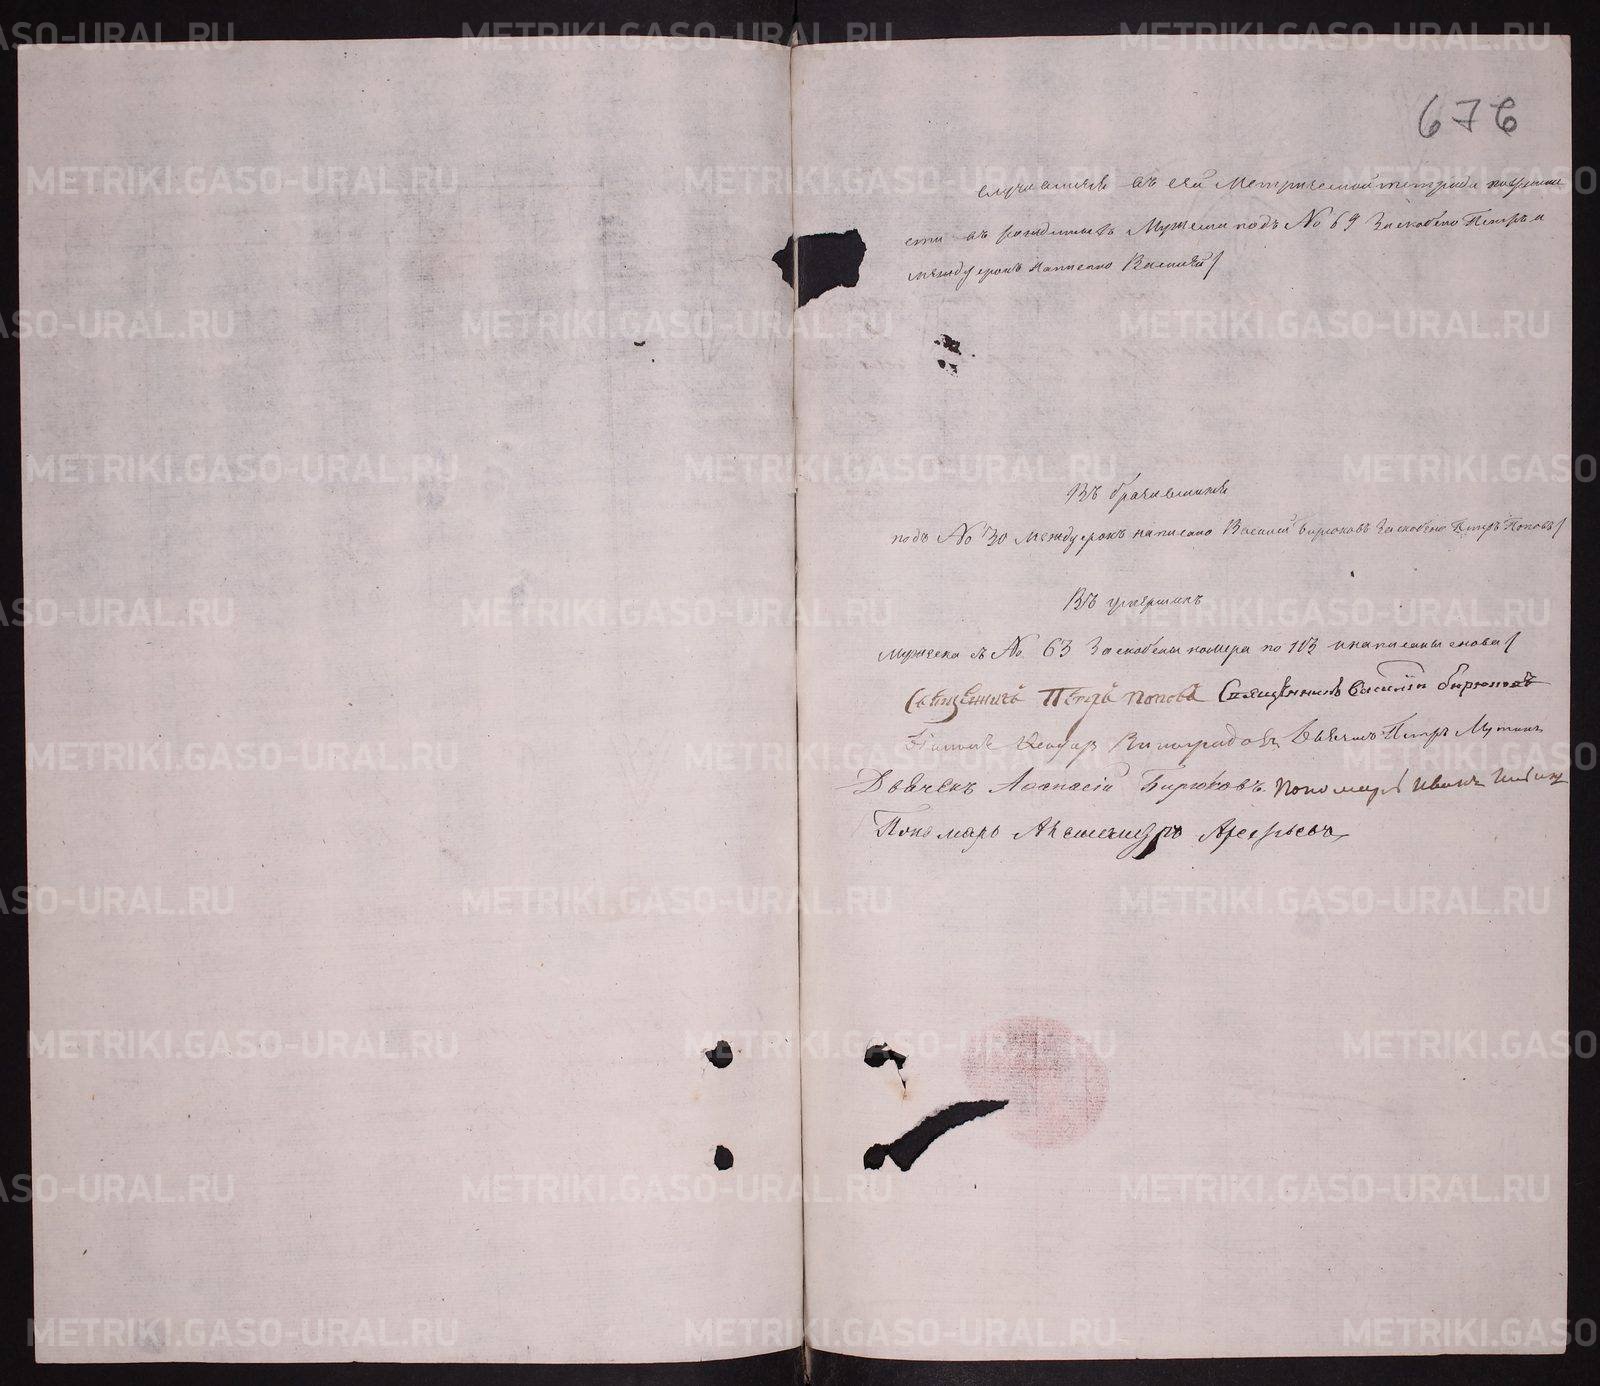 676
случившіяся въ сей Метрической тетради погрѣшно
сти въ родившихся Мужеска подъ № 69 Заскоблено Петръ и
между строкъ написано Василій/
Въ бракахъ
подъ № 30 между строкъ написано Василій Бирюковъ Заскоблено Петръ Поповъ/
Въ умершихъ
мужеска съ № 63 Заскоблены номера по 113 и написаны снова/
Священникъ Петръ Поповъ Священникъ Василій Бирюковъ
Діаконъ Виноградовъ Дьячекъ Петръ
Дьячекъ Аѳанасій Бирюковъ. Пономарь Иванъ
Пономарь Александръ Арефьевъ